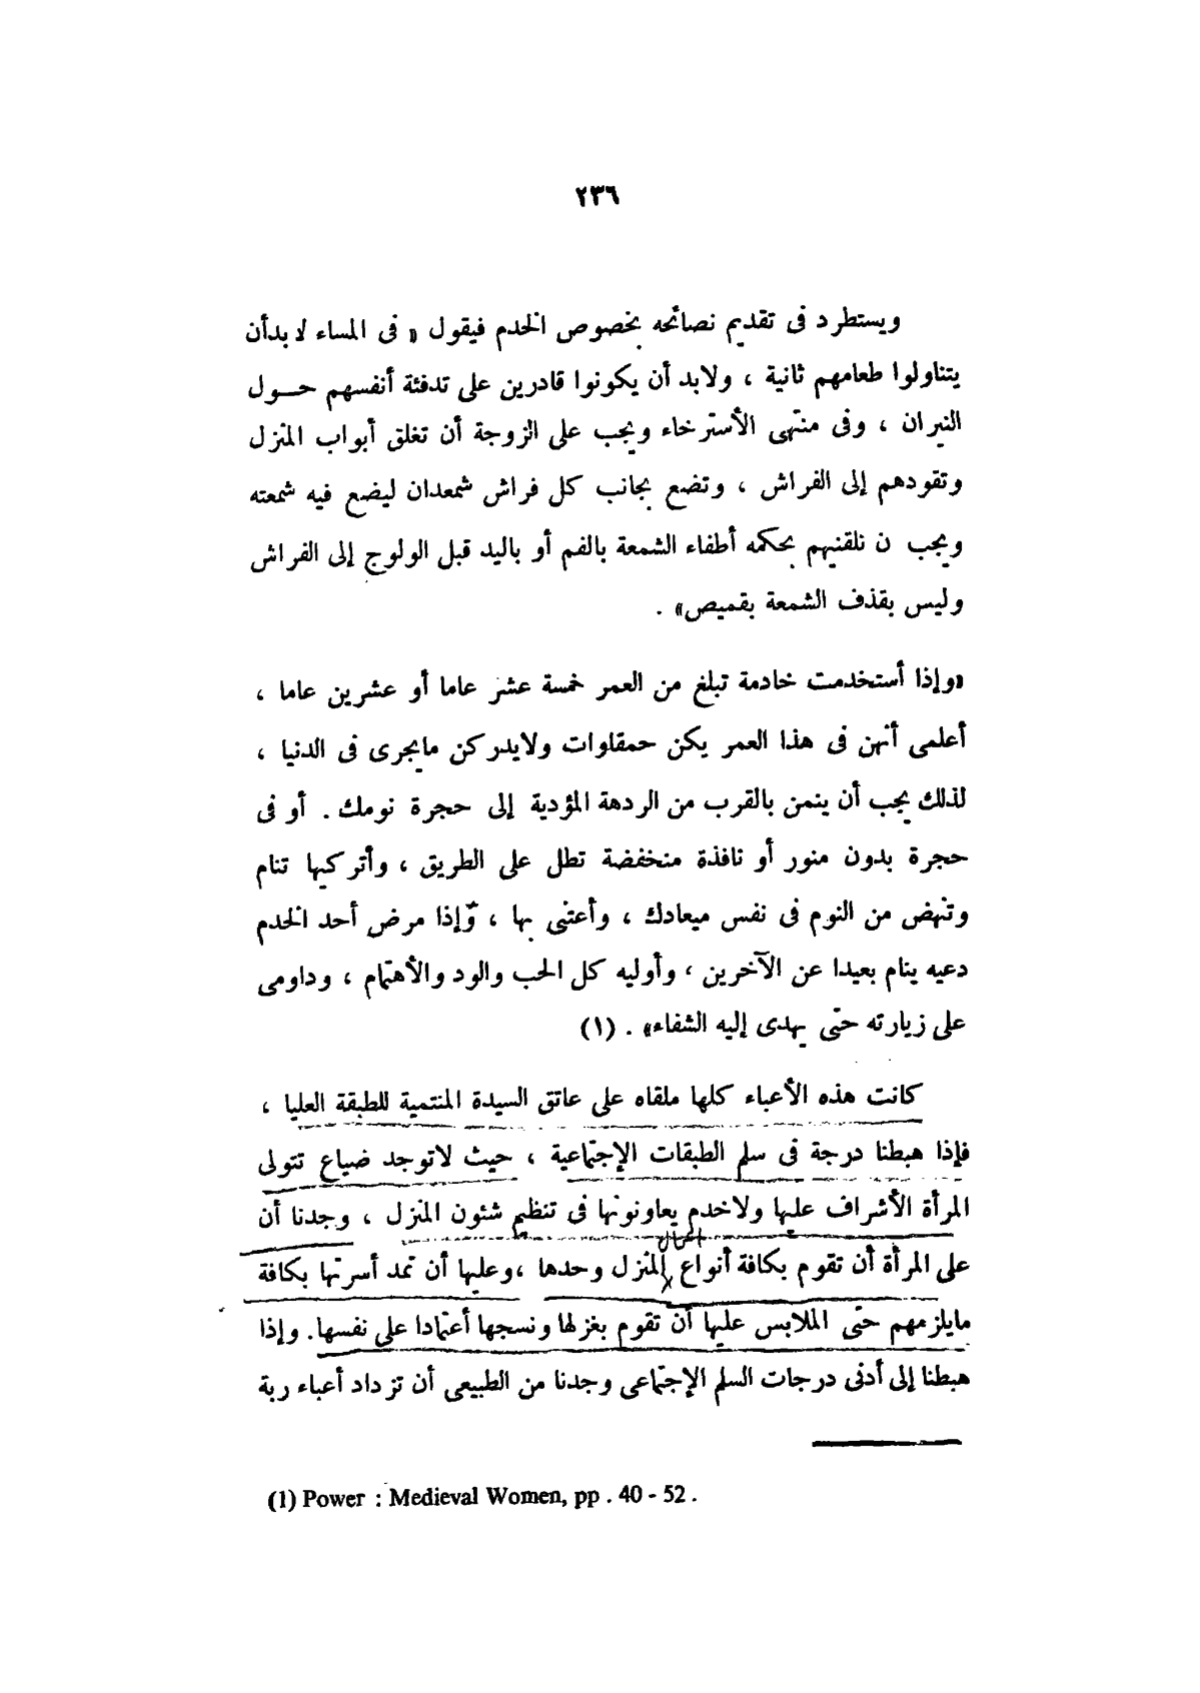 ٢٣٦
ويستطرد فى تقديم نصائحه بخصوص الخدم فيقول « فى المساء لابدأن
يتناولوا طعامهم ثانية ، ولابد أن يكونوا قادرين على تدفئة أنفسهم حــول
النيران ، وفى منتهى الأسترخاء ويجب على الزوجة أن تغلق أبواب المنزل
وتقودهم إلى الفراش ، وتضع بجانب كل فراش شمعدان ليضع فيه شمعته
ويجب ن نلقنيهم بحكمه أطفاء الشمعة بالفم أو باليد قبل الولوج إلى الفراش
وليس بقذف الشمعة بقميص» .
«وإذا أستخدمت خادمة تبلغ من العمر خمسة عشر عاما أو عشرين عاما ،
أعلمى أنهن فى هذا العمر يكن حمقلوات ولايدركن مايجرى فى الدنيا ،
لذلك يجب أن ينمن بالقرب من الردهة المؤدية إلى حجرة نومك . أو فى
حجرة بدون منور أو نافذة منخفضة تطل على الطريق ، وأتركيها تنام
وتنهض من النوم فى نفس ميعادك ، وأعتنى بها ، وإذا مرض أحد الخدم
دعيه ينام بعيدا عن الآخرين ، وأوليه كل الحب والود والأهتمام ، وداومى
على زيارته حتى يهدى إليه الشفاء» . (١)
كانت هذه الأعباء كلها ملقاه على عاتق السيدة المنتمية للطبقة العليا ،
فإذا هبطنا درجة فى سلم الطبقات الإجتماعية ، حيث لاتوجد ضياع تتولى
المرأة الأشراف عليها ولاخدم يعاونونها فى تنظيم شئون المنزل ، وجدنا أن
على المرأة أن تقوم بكافة أنواع المنزل وحدها ،وعليها أن تمد أسرتها بكافة
مايلزمهم حتى الملابس عليها أن تقوم بغزلها ونسجها أعتمادا على نفسها. وإذا
هبطنا إلى أدنى درجات السلم الإجتماعى وجدنا من الطبيعى أن تزداد أعباء ربة
(1) Power : Medieval Women, pp . 40 - 52 .